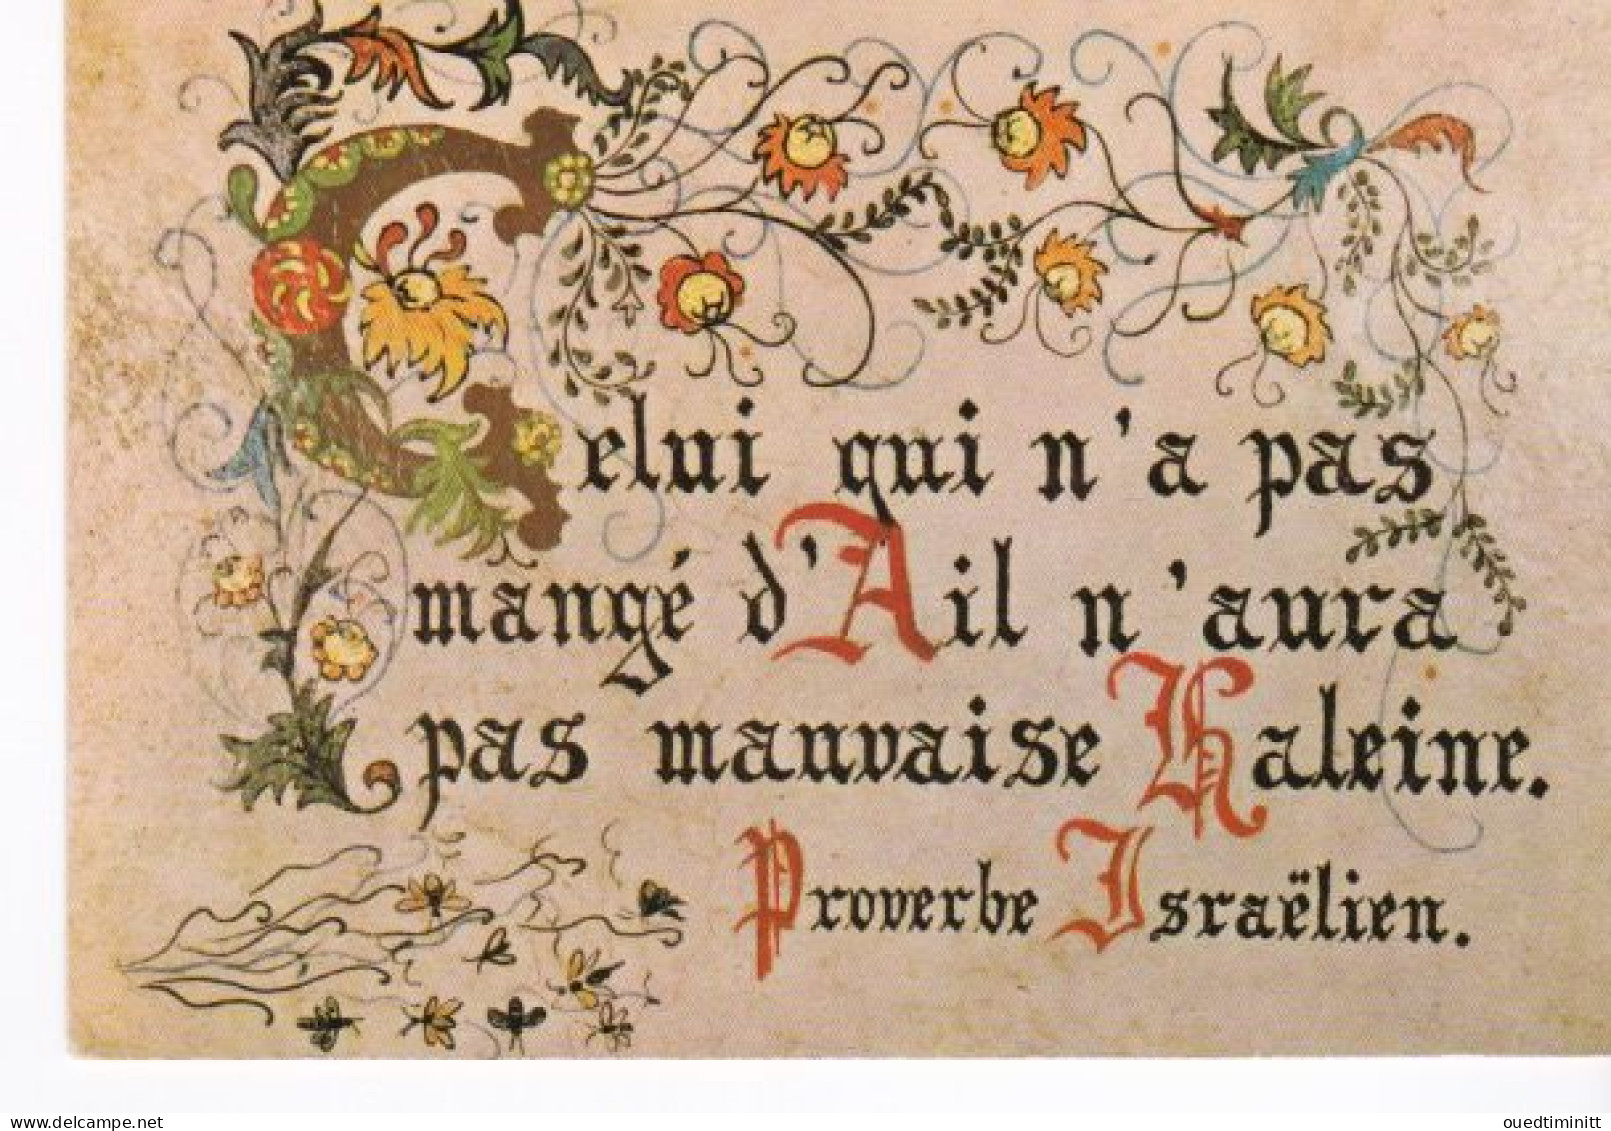 Celui qui n'a pas
mangé d'Ail n'aura
pas mauvaise Haleine.
Proverbe Israëlien.
www.delcampe.net
ouedtiminitt